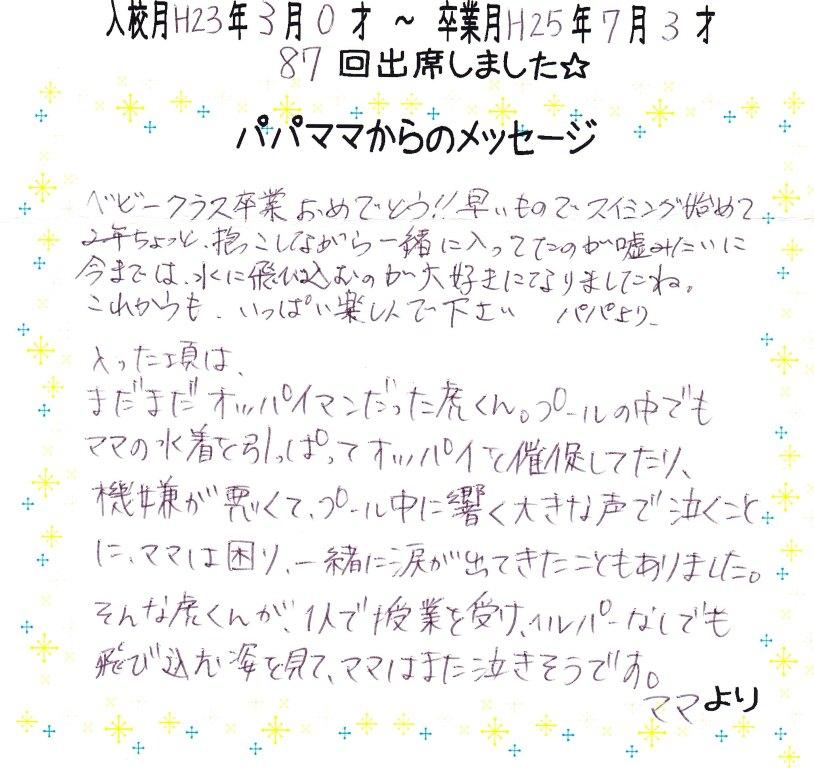 入校月H23年3月0才 ～ 卒業月H25年7月3才
87回出席しました☆
パパママからのメッセージ
ベビークラス卒業 おめでとう!! 早いもので スイミング始めて
2年ちょっと、抱っこしながら一緒に入ってたのが嘘みたいに
今までは、水に飛び込むのが大好きになりましたね。
これからも、いっぱい楽しんで下さい パパより
入った頃は、
まだまだオッパイマンだった虎くん。プールの中でも
ママの水着を引っぱってオッパイを催促してたり、
機嫌が悪くて、プール中に響く大きな声で泣くこと
に、ママは困り、一緒に涙が出てきたこともありました。
そんな虎くんが、1人で授業を受け、ヘルパーなしでも
飛び込む姿を見て、ママはまた泣きそうです。
ママより